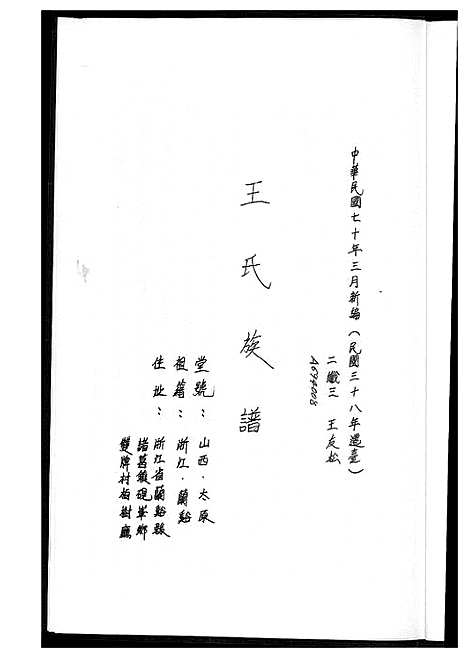 中華民國七十年三月新編(民國三十八年遷臺)
二纖三 王友松
A694008
王氏族譜
堂號:山西.太原
祖籍:浙江.蘭谿
住址:浙江省蘭谿縣
諸葛鎮硯峯鄉
雙牌村柏樹廳